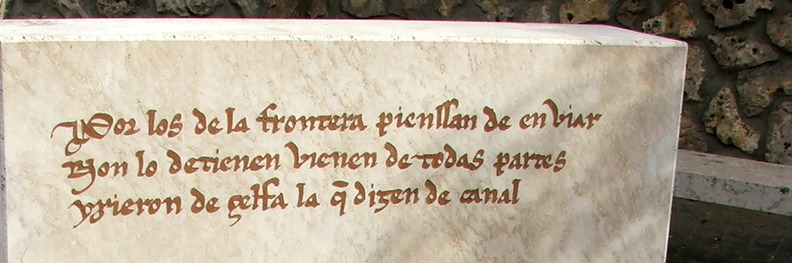 Por los de la frontera pienssan de enviar
Non lo detienen vienen de todas partes
yxieron de çelfa la q̄ dizen de canal